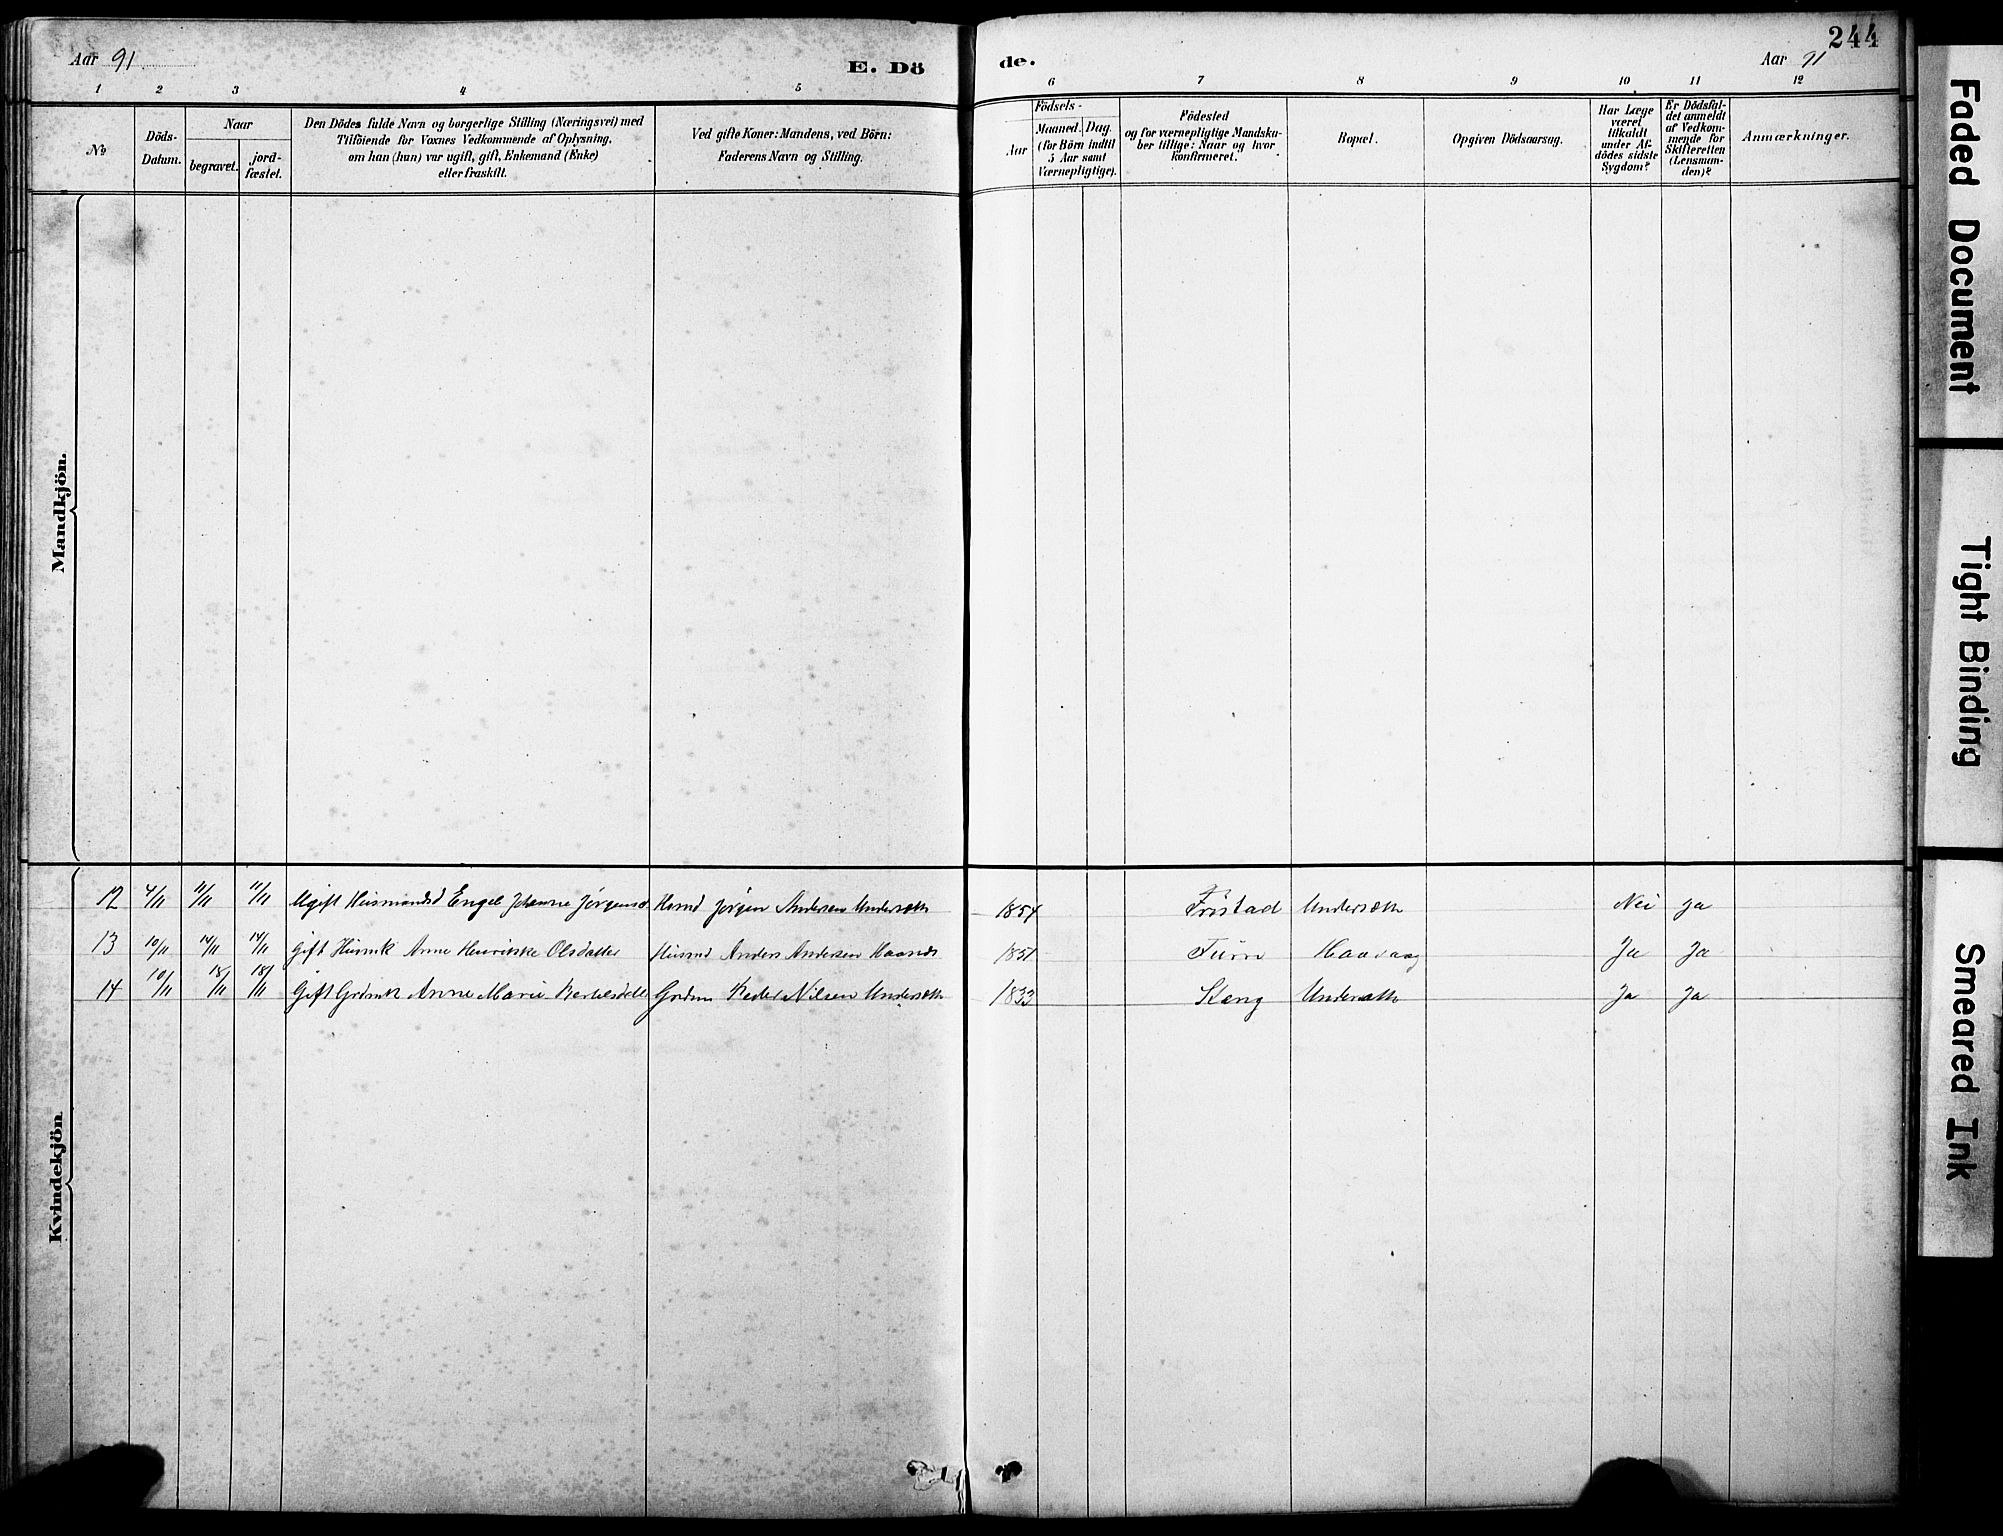 Aar 91
E. Dö
de.
Aar 91
244
1 2 3 4 5 6 7 8 9 10 11 12
№
Döds-
Datum.
Naar
begravet.
jord-
fæstet.
Den Dödes fulde Navn og borgerlige Stilling (Næringsvei) med
Tilföiende for Voxnes Vedkommende af Oplysning,
om han (hun) var ugift, gift, Enkemand (Enke)
eller fraskilt.
Ved gifte Koner: Mandens, ved Börn:
Faderens Navn og Stilling.
Födsels-
Aar
Maaned. Dag.
(for Börn indtil
5 Aar samt
Værnepligtige).
Födested
og for værnepligtige Mandska-
ber tillige: Naar og hvor
konfirmeret.
Bopæl.
Opgiven Dödsaarsag.
Har Læge
været
tilkaldt
under Af-
dödes sidste
Sygdom?
Er Dödsfal-
det anmeldt
af Vedkom-
mende for
Skifteretten
(Lensman-
den)?
Anmærkninger.
Mandkjön.
Kvindekjön
12 4/11 11/11 11/11 Ugift Husmandsd Engel Johanne Jörgensd Husmd Jörgen Andersen Undersæth 1854 Fristad Undersæth Nei Ja
13 10/11 14/11 14/11 Gift Husmk Anne Henrikke Olsdatter Husmd Anders Andersen 1851 Ja Ja
14 10/11 18/11 18/11 Gift Grdmk Anne Marie Grdm Peder Nilsen Undersæth 1833 Stang Undersæth Ja Ja
Faded Document
Tight Binding
Smeared Ink